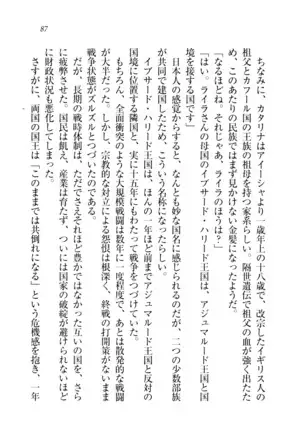 87
ちなみに、カタリナはアイーシャより一歳年上の十八歳で、改宗したイギリス人の
祖父とカフール国の王族の祖母を持つ家系らしい。隔世遺伝で祖父の血が強く出たた
め、このあたりの民族ではまず見かけない金髪になったのだ。
「なるほどね。それじゃあ、ライラのほうは?」
「はい。ライラさんの母国のイブサード・ハリード王国は、アジュマルード王国と国
境を接する国です」
日本人の感覚からすると、なんとも妙な国名に感じられるのだが、二つの少数部族
が共同で建国したため、こういう名称になったらしい。
イブサード・ハリード王国は、ほんの一年ほど前までアジュマルード王国と反対の
国境に位置する隣国と、実に十五年にもわたって戦争をつづけていた。
もちろん、全面衝突のような大規模戦闘は数年に一度程度で、あとは散発的な戦闘
が大半だった。しかし、宗教的な対立による怨恨は根深く、終戦の打開策がないまま
戦争状態がズルズルとつづいていたのである。
だが、長期の戦時体制は、ただでさえそれほど豊かではなかった互いの国を、さら
に疲弊させた。国民は飢え、産業は育たず、ついには国家の破綻が避けられないほど
に財政状況も悪化してしまった。
さすがに、両国の国王は「このままでは共倒れになる」という危機感を抱き、一年